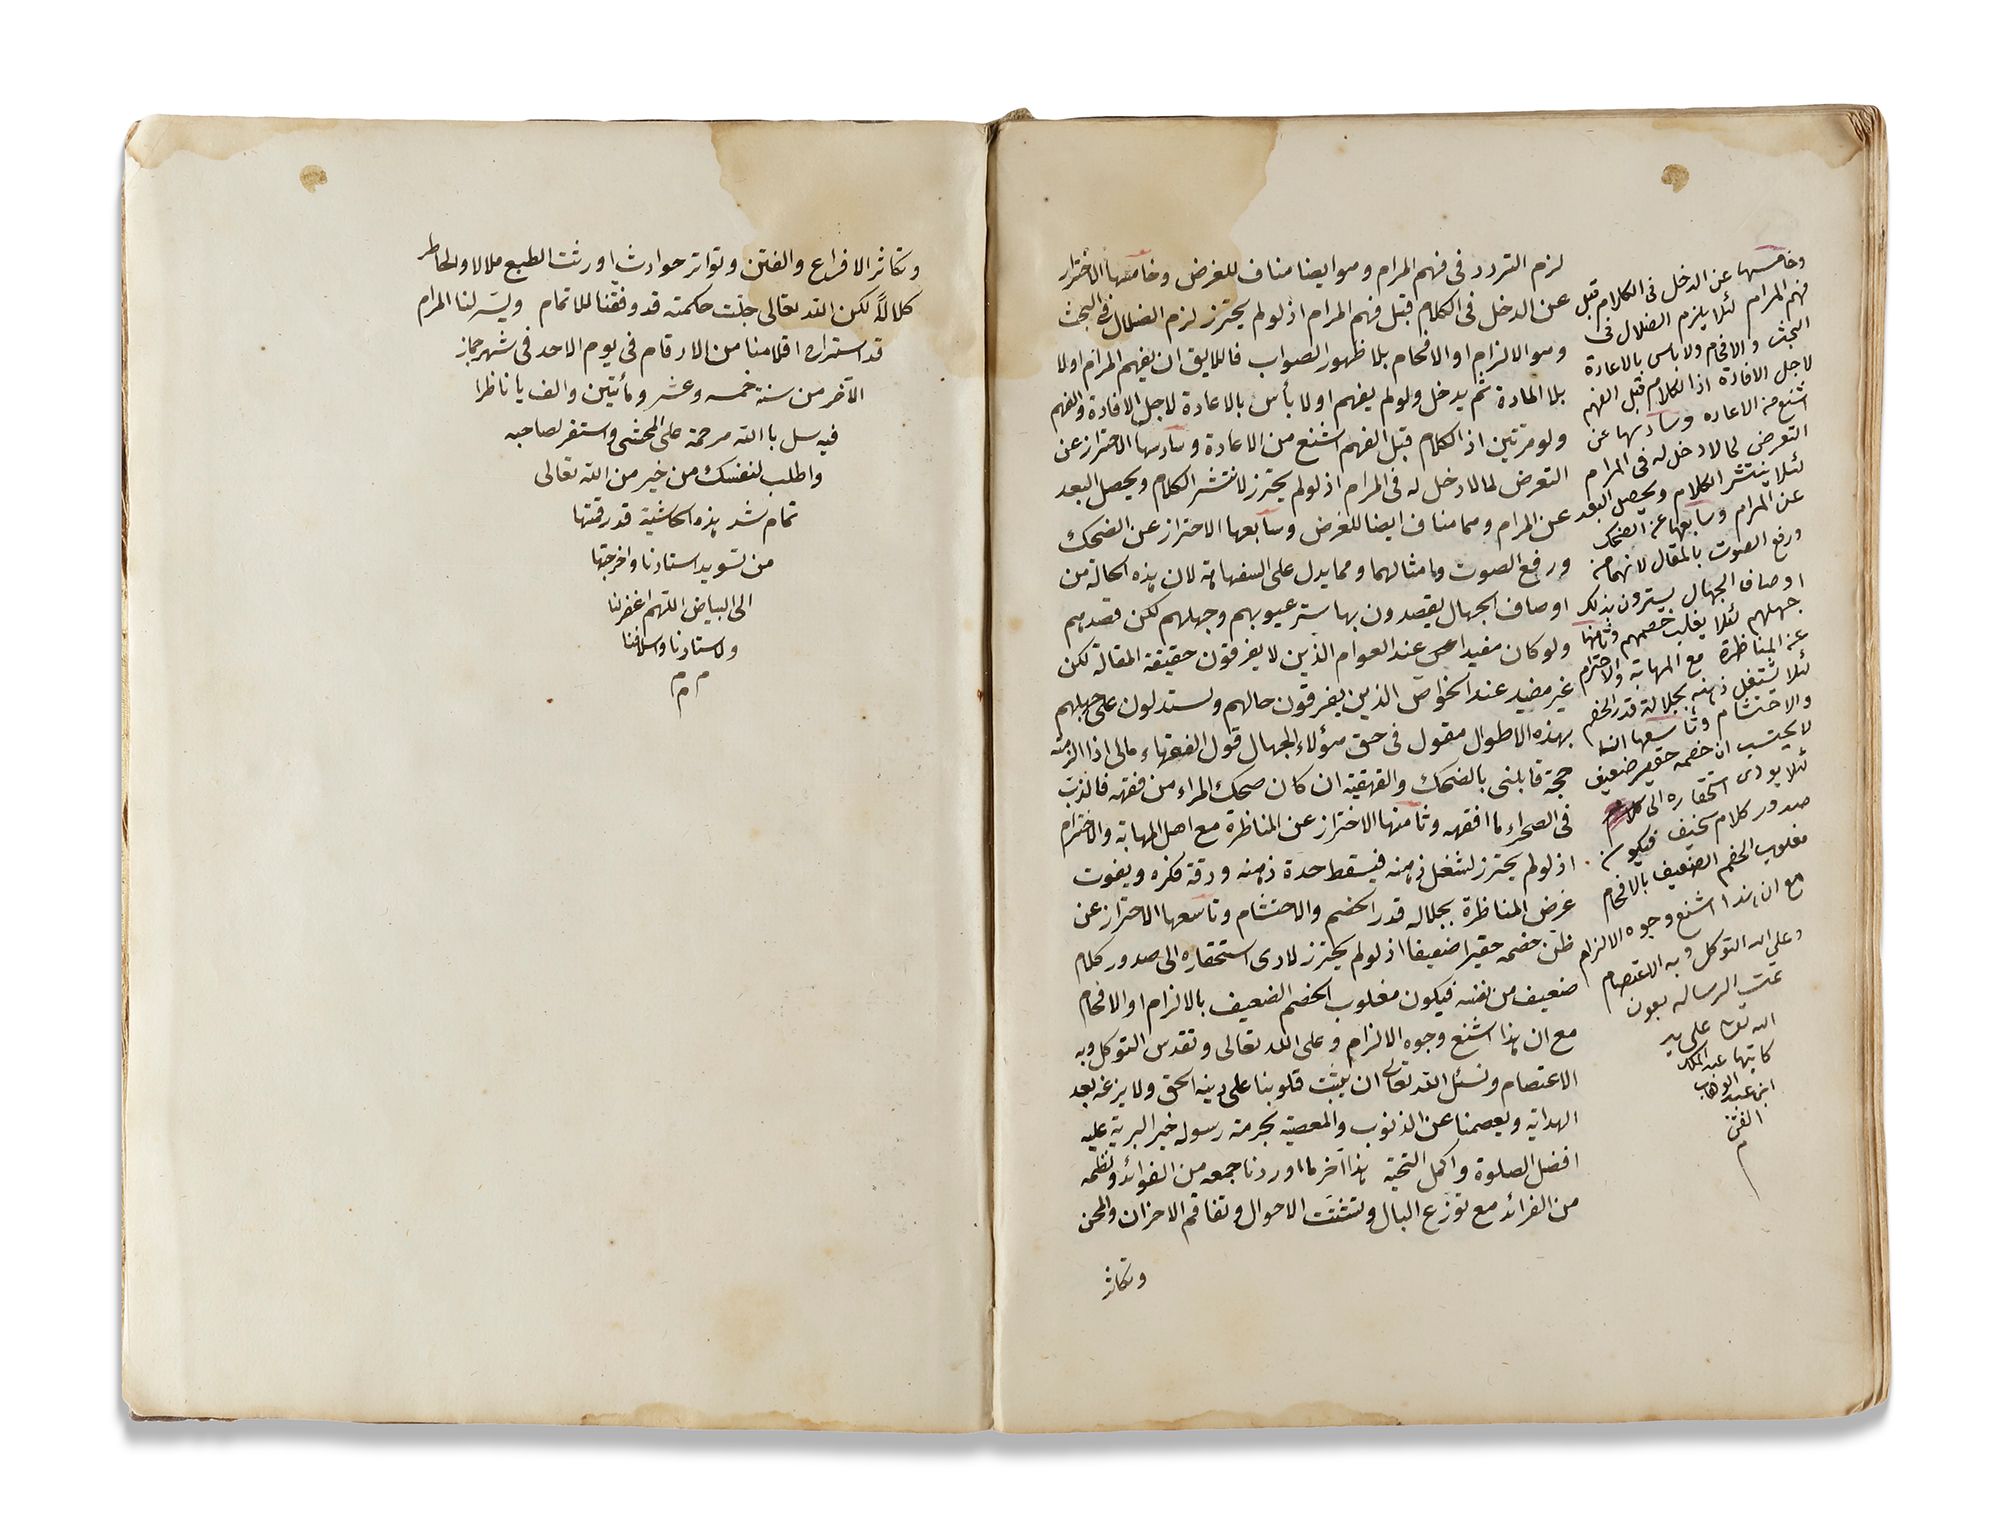 لزم التردد فى فهم المرام وهو ايضا مناف للغرض وخامسها الاحتراز
عن الدخل فى الكلام قبل فهم المرام اذ لولم يحترز لزم الضلال فى البحث
وهو الالزام او الافحام بلا ظهور الصواب فاللايق ان يفهم المرام اولا
بلا المادة ثم يدخل ولو لم يفهم اولا بأس بالاعادة لاجل الافادة والفهم
ولو مرتين اذ الكلام قبل الفهم اشنع من الاعادة وسادسها الاحتراز عن
التعرض لما لا دخل له فى المرام اذ لولم يحترز لانتشر الكلام ويحصل البعد
عن المرام وهما مناف ايضا للغرض وسابعها الاحتراز عن الضحك
ورفع الصوت وامثالهما ومما يدل على السفهاهة لان هذه الحالة من
اوصاف الجهال يقصدون بها ستر عيوبهم وجهلهم لكن قصدهم
ولو كان مفيدا عن عند العوام الذين لا يفرقون حقيقة المقالة لكن
غير مفيد عند الخواص الذين يفرقون حالهم ويستدلون على جهلهم
بهذه الاطوال مقول فى حق هؤلاء الجهال قول الفقهاء مالى اذا الزمته
حجة قابلنى بالضحك والقهقهة ان كان ضحك المراء من فقهه فالذئب
فى الصحراء ما افقهه وثامنها الاحتراز عن المناظرة مع اهل المهابة والاحترام
اذ لولم يحترز لشغل ذهنه فيسقط حدة ذهنه ودقة فكره ويفوت
غرض المناظرة بجلاله قدر الخصم والاحتشام وتاسعها الاحتراز عن
ظن خصمه حقيرا ضعيفا اذ لولم يحترز لادى استحقاره الى صدور كلام
ضعيف من نفسه فيكون مغلوب الخصم الضعيف بالالزام او الافحام
مع ان هذا اشنع وجوه الالزام وعلى الله تعالى وتقدس التوكل وبه
الاعتصام ونسئل الله تعالى ان يثبت قلوبنا على دينه الحق ولا يزغه بعد
الهداية ويعصمنا عن الذنوب والمعصية بحرمة رسوله خير البرية عليه
افضل الصلوة واكمل التحية هذا آخر ما اوردنا جمعه من الفوائد ونظمه
من الفرائد مع توزع البال وتشتت الاحوال وتفاقم الاحزان والمحن
وتكاثر
وخامسها عن الدخل فى الكلام قبل
فهم المرام لئلا يلزم الضلال فى
البحث والافحام ولا بأس بالاعادة
لاجل الافادة اذ الكلام قبل الفهم
اشنع من الاعاده وسادسها عن
التعرض لما لا دخل له فى المرام
لئلا ينتشر الكلام ويحصل البعد
عن المرام وسابعها عن الضحك
ورفع الصوت بالمقال لانهما من
اوصاف الجهال يسترون بذلك
جهلهم لئلا يغلب خصمهم وثامنها
عن المناظرة مع المهابة والاحترام
لئلا يشتغل ذهنه بجلالة قدر الخصم
والاحتشام وتاسعها ان
لا يحتسب ان خصمه حقير ضعيف
لئلا يودى استحقاره الى
صدور كلام سخيف فيكون
مغلوب الخصم الضعيف بالافحام
مع ان هذا اشنع وجوه الالزام
وعلى الله التوكل وبه الاعتصام
تمت الرساله بعون
الله تعالى على يد
كاتبها عبد الملك
ابن عبد الوهاب
وتكاثر الافزاع والفتن وتواتر حوادث اورثت الطبع ملالا والخاطر
كلالاً لكن الله تعالى جلت حكمته قد وفقنا للاتمام ويسّر لنا المرام
قد استراح اقلامنا من الارقام فى يوم الاحد فى شهر جماز
الآخر من سنة خمسه وعشر ومأتين والف يا ناظرا
فيه سل بالله مرحمة على المحشى واستغفر لصاحبه
واطلب لنفسك من خير من الله تعالى
تمام شد هذه الحاشية قد رقمتها
من تسويد استادنا واخرجتها
الى البياض اللهم اغفر لنا
ولاستادنا واسلافنا
م م م